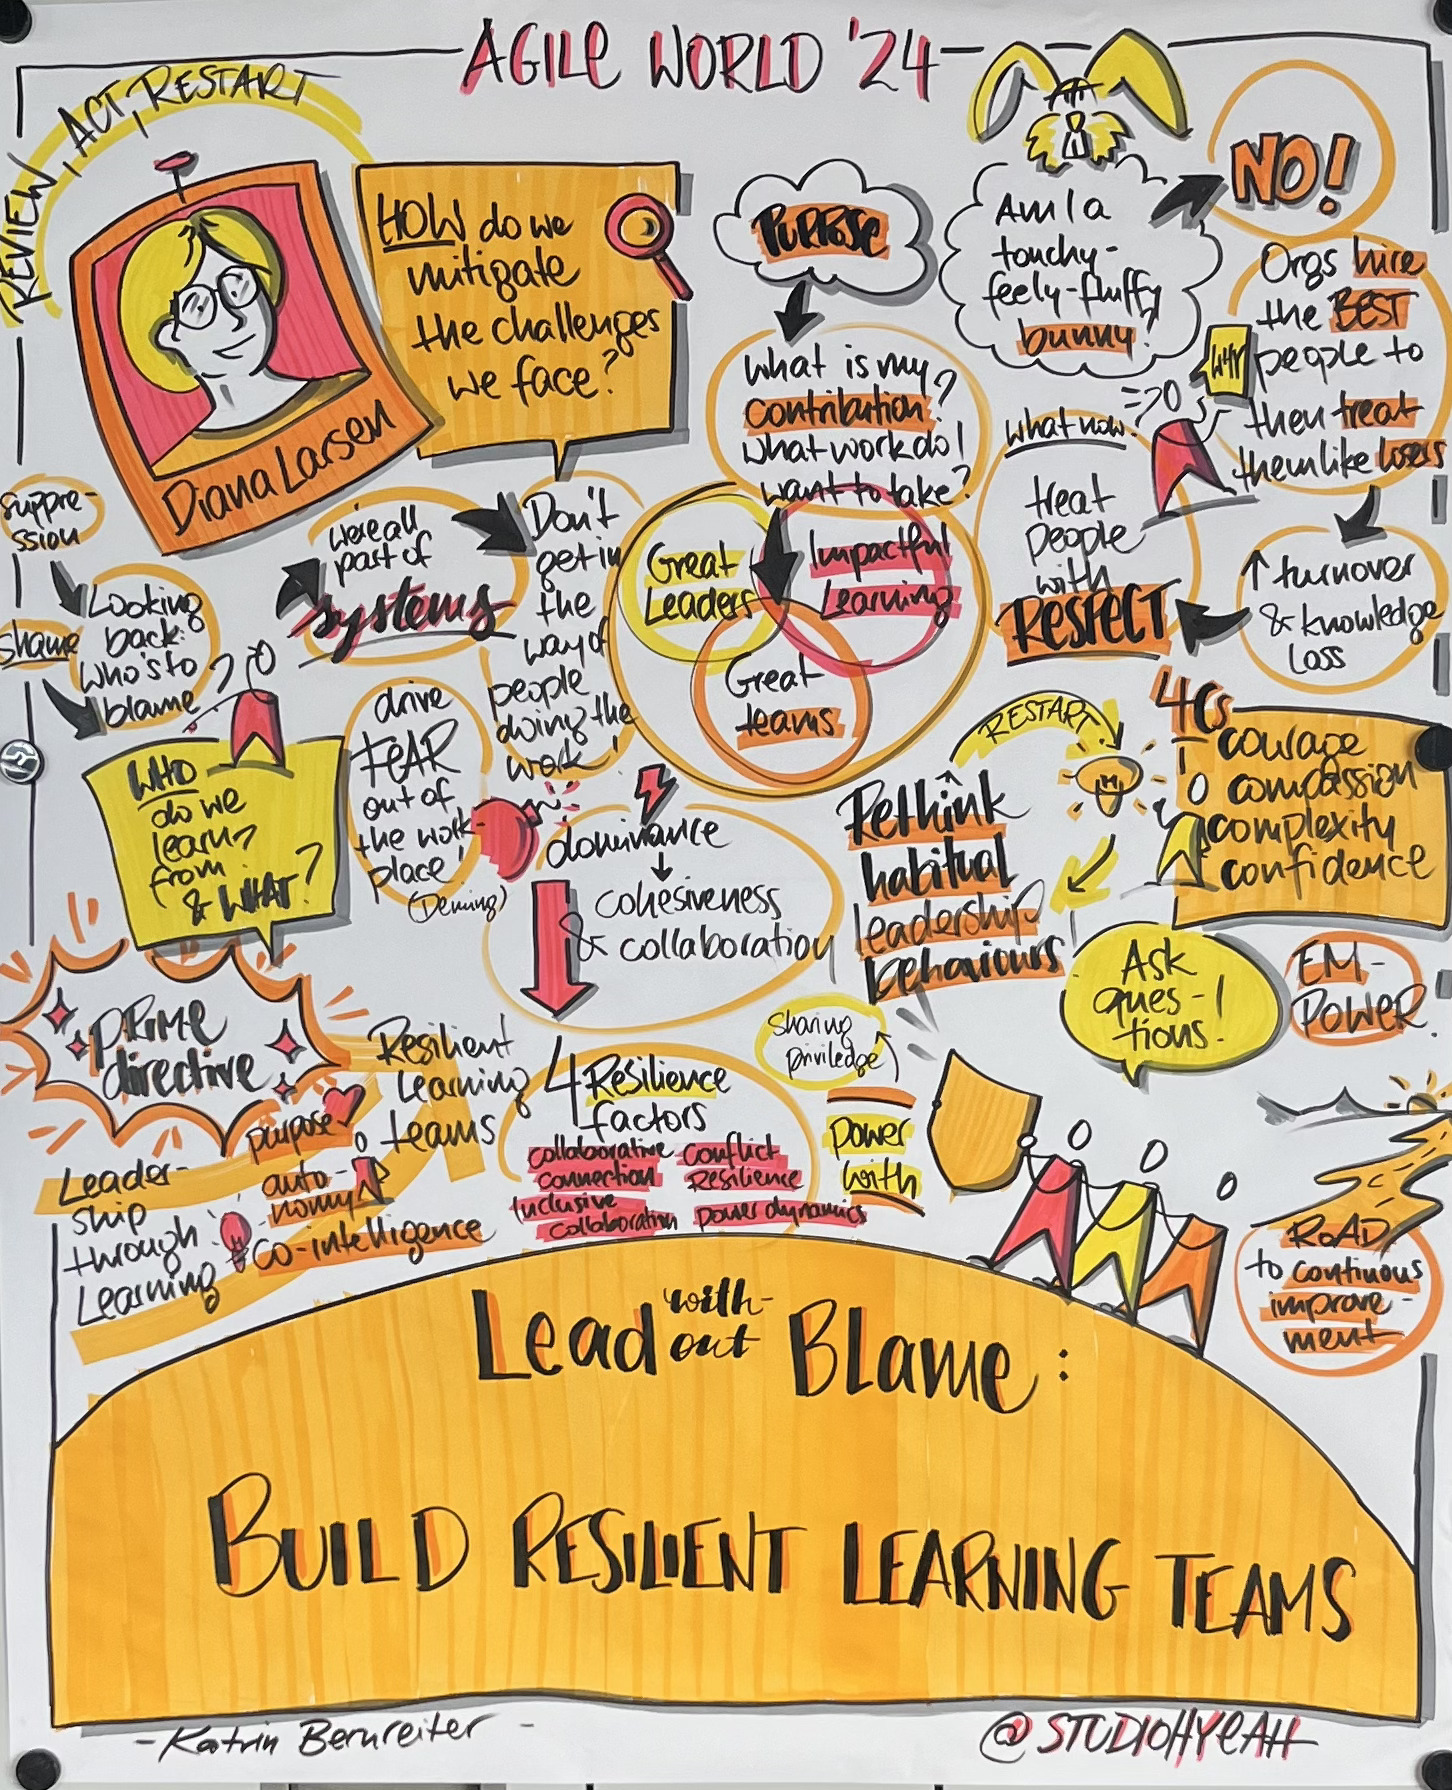 AGILE WORLD '24
REVIEW, ACT, RESTART
Diana Larsen
HOW do we
mitigate
the challenges
we face?
PURPOSE
What is my
contribution?
What work do I
want to take?
Am I a
touchy-
feely-fluffy
bunny?
NO!
Orgs hire
the BEST
people to
then treat
them like losers
what now?
treat
people
with
RESPECT
↑ turnover
& knowledge
loss
Suppre-
ssion
shame
Looking
back:
who's to
blame?
we're all
part of
systems
Don't
get in
the
way of
people
doing the
work!
Great
Leaders
Impactful
Learning
Great
teams
WHO
do we
learn
from
& WHAT?
drive
FEAR
out of
the work-
place!
(Deming)
dominance
↓
cohesiveness
& collaboration
RESTART
Rethink
habitual
leadership
behaviours
4Cs
courage
compassion
complexity
confidence
Ask
ques-
tions!
EM-
POWER
PRIME
directive
Resilient
Learning
teams
Leader-
ship
through
Learning
purpose
auto-
nomy
co-intelligence
4 Resilience
factors
collaborative
connection
Conflict
Resilience
Inclusive
Collaboration
power dynamics
Sharing
priviledge
power
with
ROAD
to continuous
improve-
ment
Lead with-
out Blame:
BUILD RESILIENT LEARNING TEAMS
- Katrin Bernreiter -
@STUDIOHYEAH